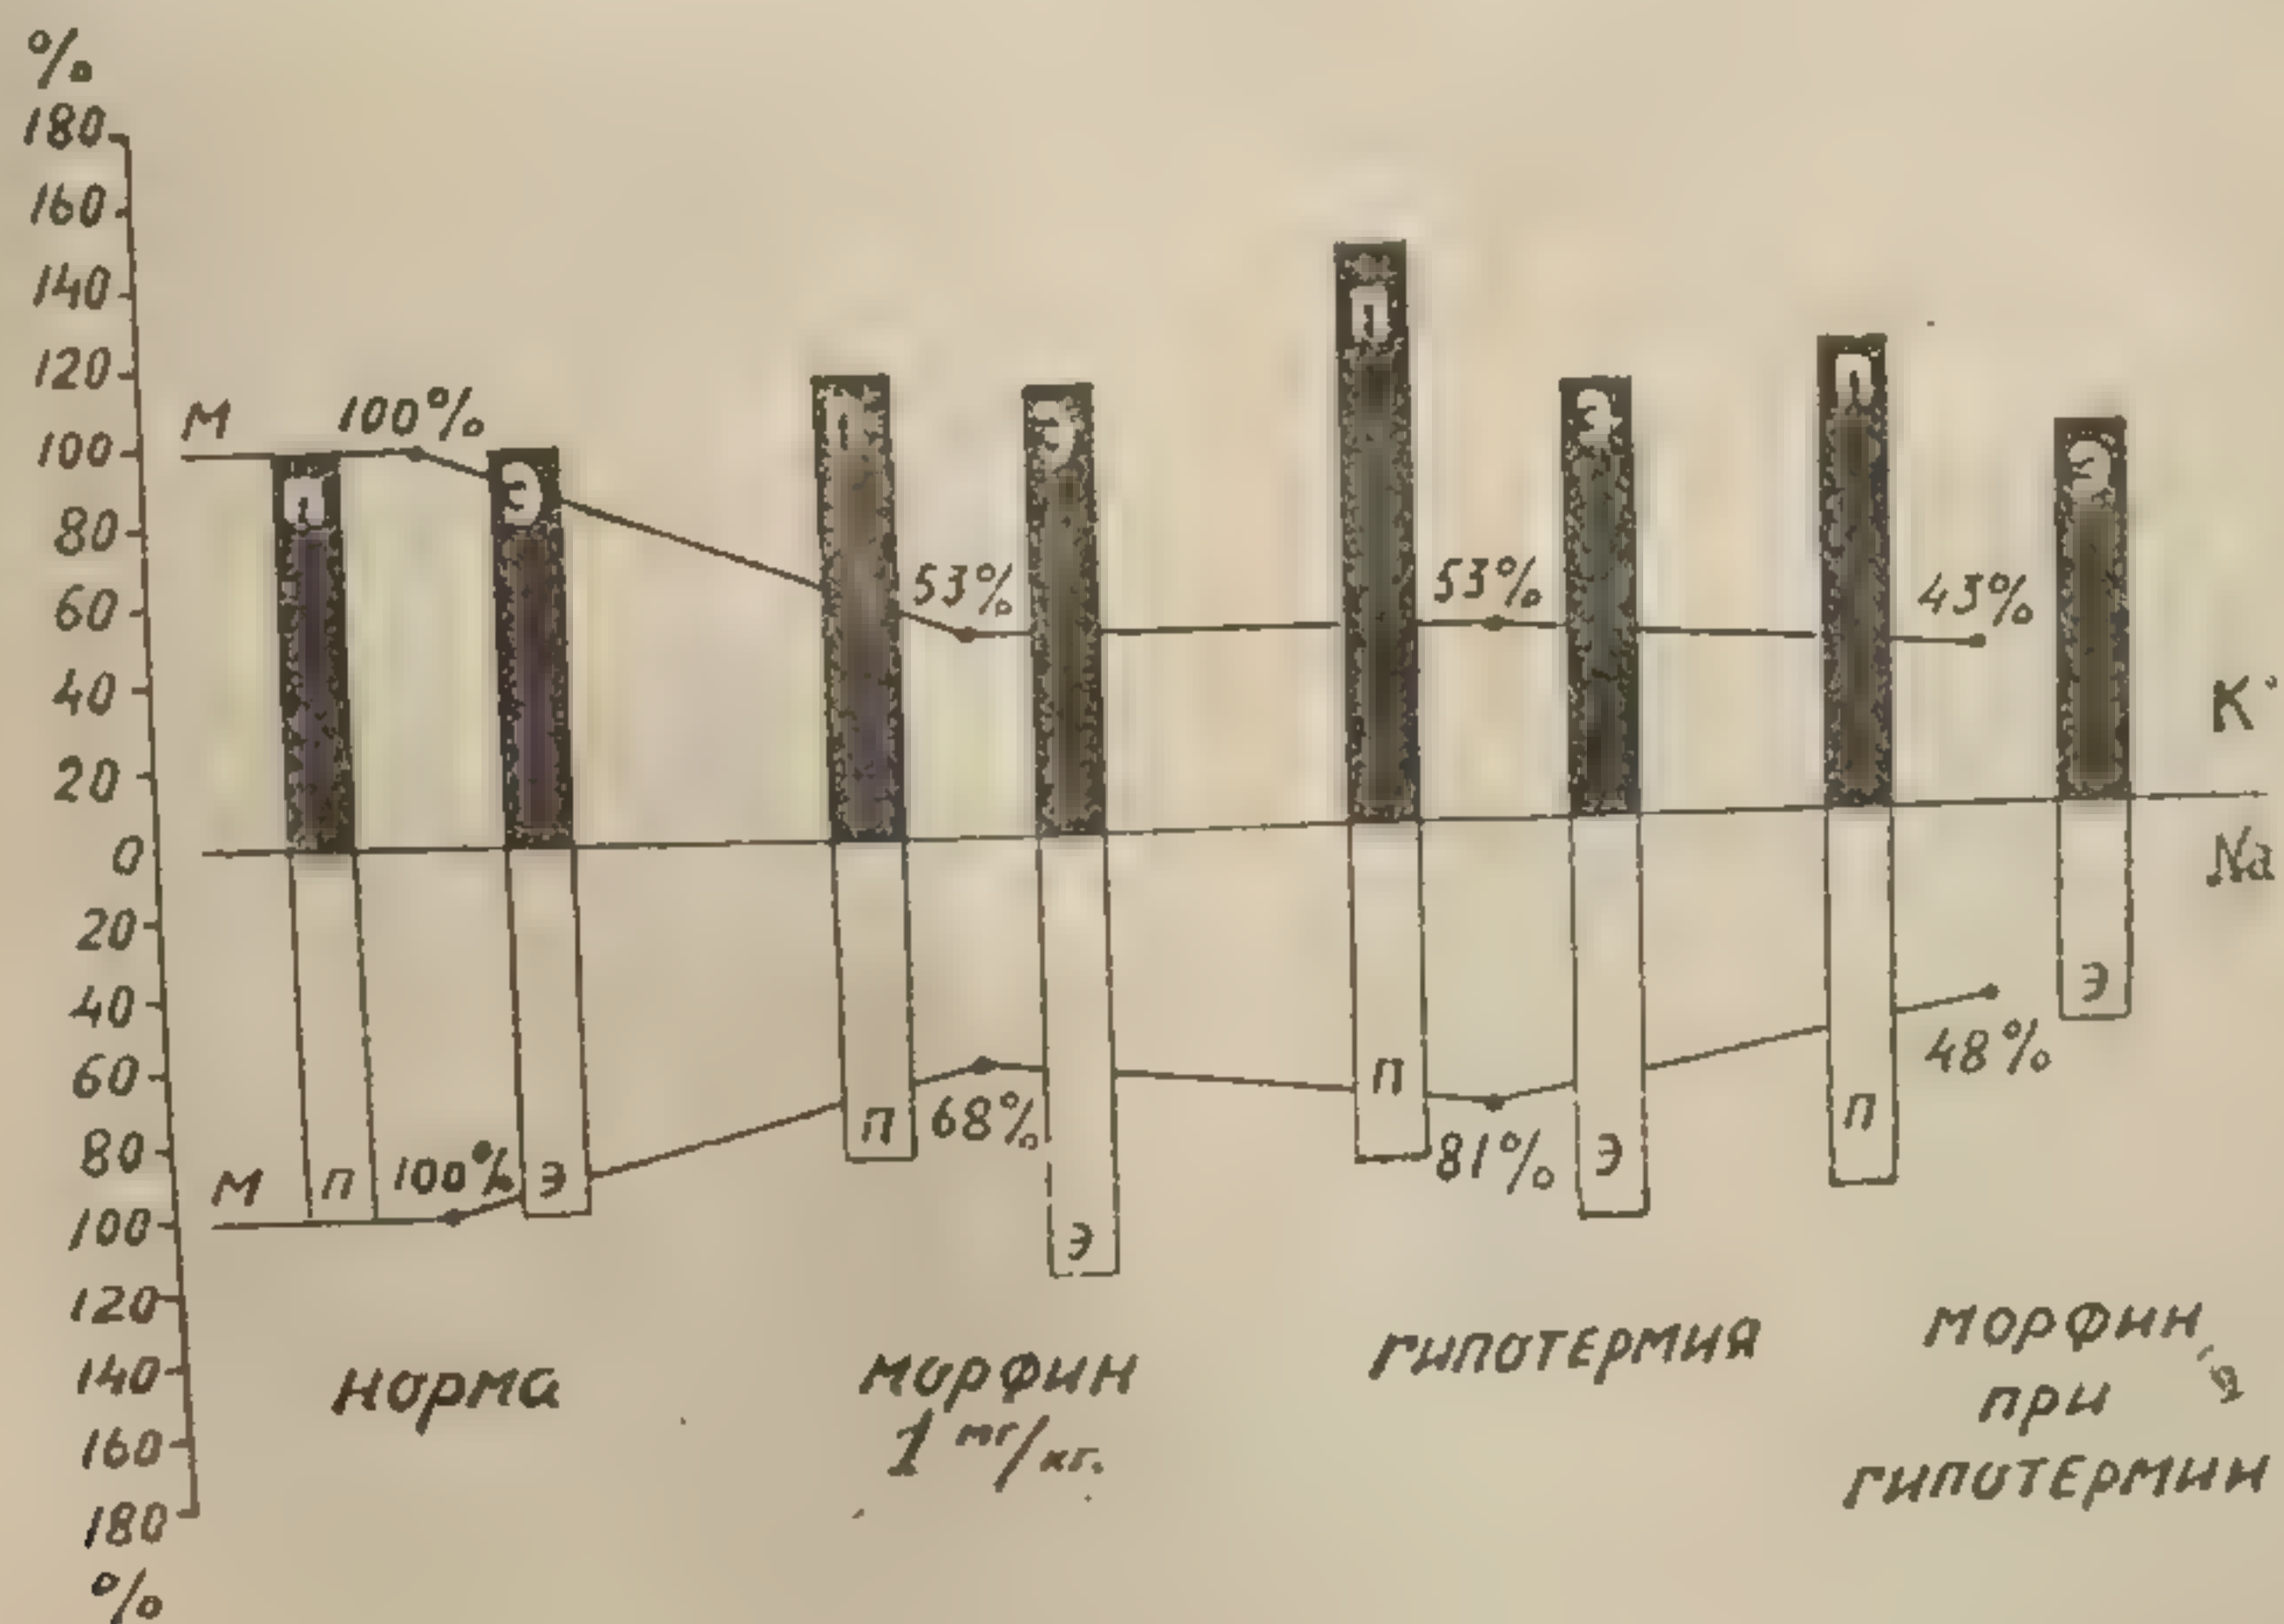 %
180
160
140
120
100
80
60
40
20
0
20
40
60
80
100
120
140
160
180
%
М 100% 53% 53% 43%
П Э П Э П Э П Э
К
Na
П Э П Э П Э П Э
М 100% 68% 81% 48%
норма
морфин
1 мг/кг.
гипотермия
морфин
при
гипотермии